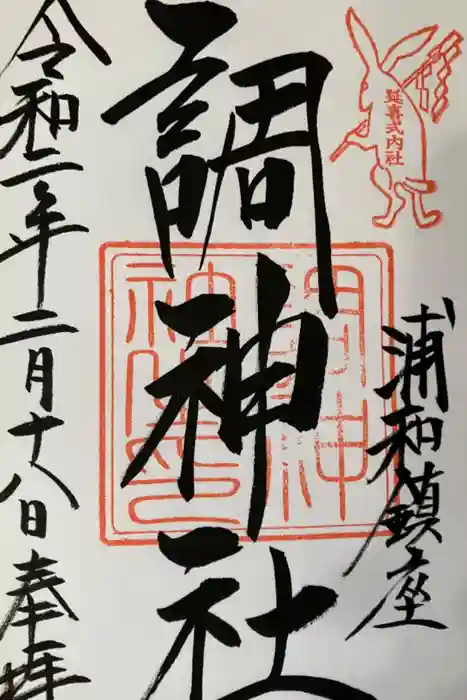 延喜式内社
浦和鎮座
調神社
調神社之印
令和二年二月十八日奉拝